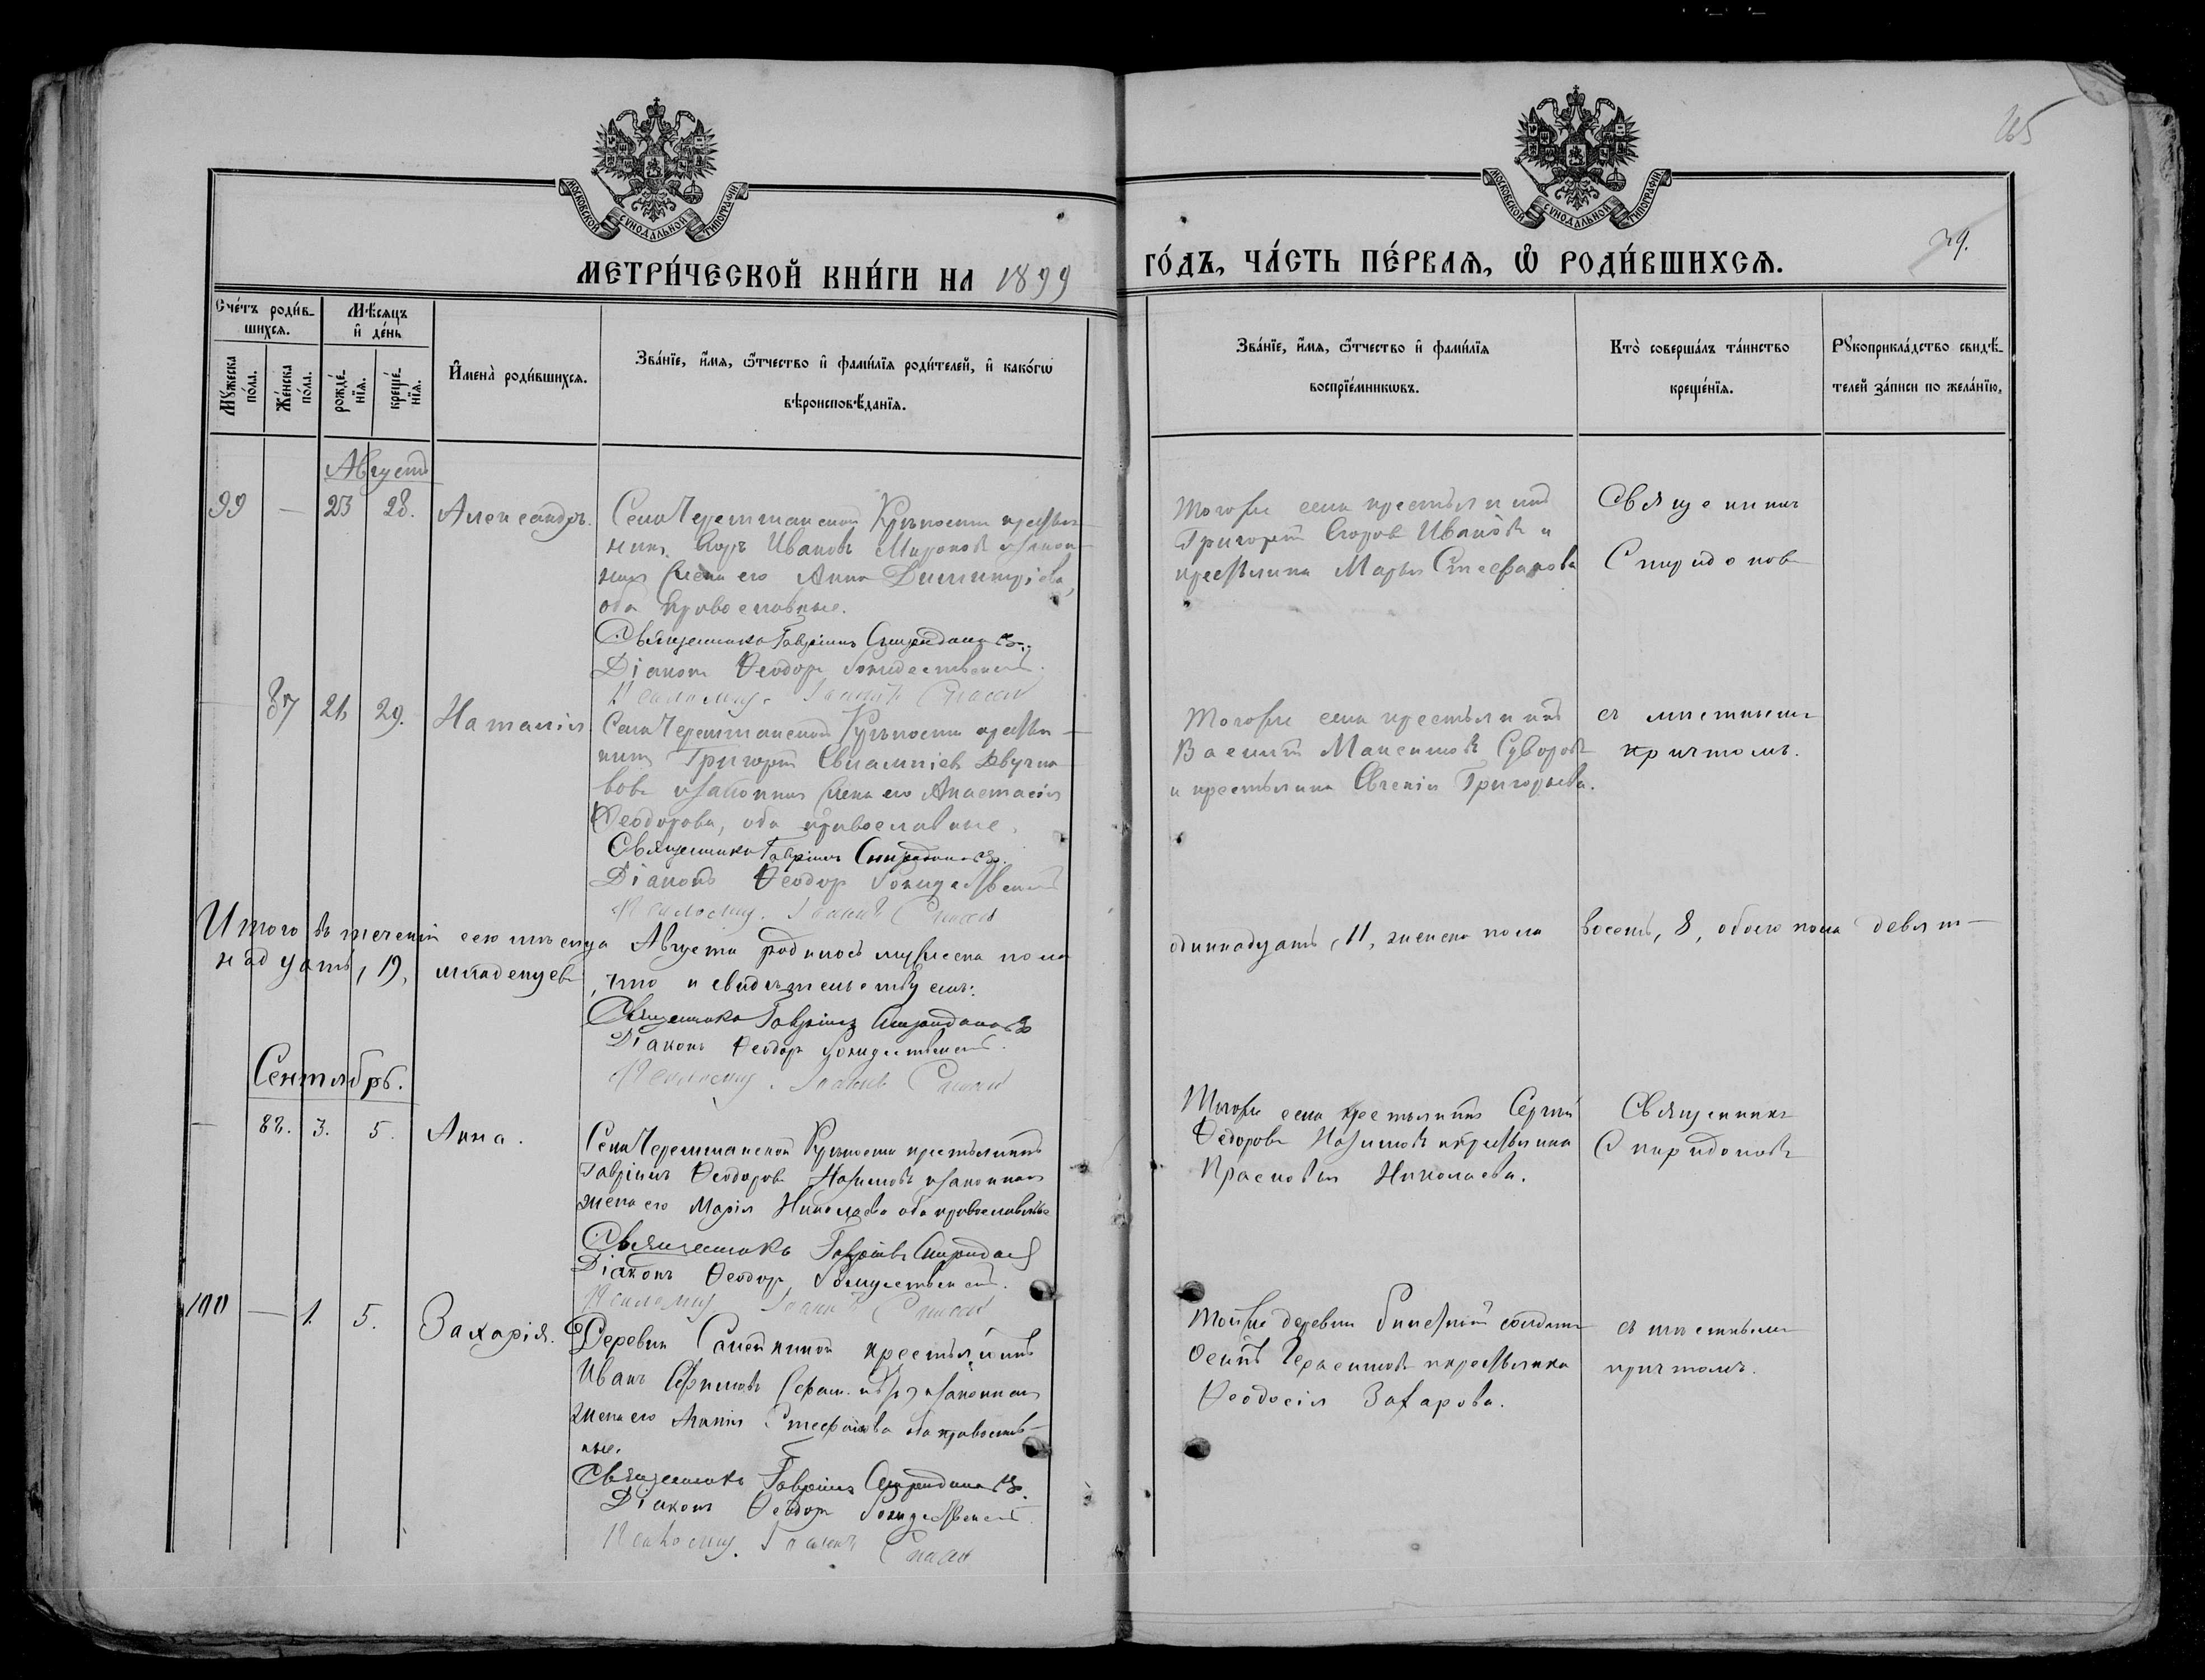 МОСКОВСКОЙ СѴНОДАЛЬНОЙ ТИПОГРАФІИ
МОСКОВСКОЙ СѴНОДАЛЬНОЙ ТИПОГРАФІИ
МЕТРИ́ЧЕСКОЙ КНИ́ГИ НА 1899
ГО́ДЪ, ЧА́СТЬ ПЕ́РВАЯ, Ѡ РОДИ́ВШИХСЯ.
Сче́тъ роди́в-
шихся.
Мѣ́сяцъ
и де́нь
Мꙋ́жеска
по́ла.
Же́нска
по́ла.
рожде́-
нїя.
креще́-
нїя.
Имена̀ роди́вшихся.
Зва́нїе, и́мя, ѻ́тчество и фами́лїя роди́телей, и како́гѡ
вѣроисповѣ́данїя.
Зва́нїе, и́мя, ѻ́тчество и фами́лїя
воспрїе́мникѡвъ.
Кто̀ соверша́лъ та́инство
креще́нїя.
Рꙋкоприкла́дство свидѣ́-
телей за́писи по жела́нїю.
Августъ
99 — 23 28. Александръ.
Села Черемшанской Крѣпости крестья-
нинъ Егоръ Ивановъ и закон-
ная жена его Анна Димитріева,
оба православные.
Священникъ Гавріилъ Спиридоновъ.
Діаконъ Ѳеодоръ Рождественскій.
Псаломщ. Іоаннъ
Тогоже села крестьянинъ
Григорій Егоровъ Ивановъ и
крестьянка Марья Стефанова
Священникъ
Спиридоновъ
87 26 29. Наталія
Села Черемшанской Крѣпости крестья-
нинъ Григорій
и законная жена его Анастасія
Ѳеодорова, оба православные.
Священникъ Гавріилъ Спиридоновъ.
Діаконъ Ѳеодоръ Рождественскій
Псаломщ. Іоаннъ
Тогоже села крестьянинъ
Василій Максимовъ Суворовъ
и крестьянка Евгенія Григорьева.
съ мѣстнымъ
причтомъ.
Итого въ теченіи сего мѣсяца Августа родилось мужеска пола
одиннадцать, 11, женска пола восемь, 8, обоего пола девят-
надцать, 19, младенцевъ, что и свидѣтельствуемъ:
Священникъ Гавріилъ Спиридоновъ
Діаконъ Ѳеодоръ Рождественскій.
Псаломщ. Іоаннъ
Сентябрь.
— 88. 3. 5. Анна.
Села Черемшанской Крѣпости крестьянинъ
Гавріилъ Ѳеодоровъ Назимовъ и законная
жена его Марія Николаева оба православные
Священникъ Гавріилъ Спиридоновъ
Діаконъ Ѳеодоръ Рождественскій.
Псаломщ. Іоаннъ
Тогоже села крестьянинъ Сергѣй
Ѳедоровъ Назимовъ и крестьянка
Прасковья Николаева.
Священникъ
Спиридоновъ
100 — 1. 5. Захарія.
Деревни крестьянинъ
Иванъ Ефимовъ и законная
жена его Стефанова оба православ-
ные.
Священникъ Гавріилъ Спиридоновъ.
Діаконъ Ѳеодоръ Рождественскій
Псаломщ. Іоаннъ
Тойже деревни солдатъ
Осипъ Герасимовъ и крестьянка
Ѳеодосія Захарова.
съ мѣстнымъ
причтомъ.